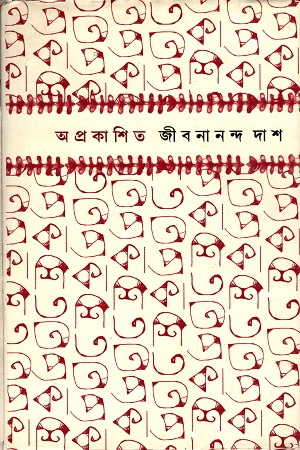 অপ্রকাশিত জীবনানন্দ দাশ